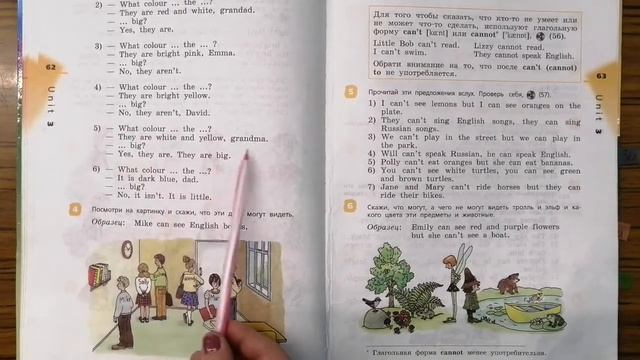 2) — What colour ... the ... ?
— They are red and white, grandad.
— ... big?
— Yes, they are.
3) — What colour ... the ... ?
— They are bright pink, Emma.
— ... big?
— No, they aren't.
4) — What colour ... the ...?
— They are bright yellow.
— ... big?
— No, they aren't, David.
5) — What colour ... the ...?
— They are white and yellow, grandma.
— ... big?
— Yes, they are. They are big.
6) — What colour ... the ...?
— It is dark blue, dad.
— ... big?
— No, it isn't. It is little.
4 Посмотри на картинку и скажи, что эти могут видеть.
Образец: Mike can see English
62
Unit 3
Для того чтобы сказать, что кто-то не умеет или
не может что-то сделать, используют глагольную
форму can't [kɑːnt] или cannot* ['kænɒt], (56).
Little Bob can't read. Lizzy cannot read.
I can't swim. They cannot speak English.
Обрати внимание на то, что после can't (cannot)
to не употребляется.
5 Прочитай эти предложения вслух. Проверь себя, (57).
1) I can't see lemons but I can see oranges on the
plate.
2) They can't sing English songs, they can sing
Russian songs.
3) We can't play in the street but we can play
in the park.
4) Will can't speak Russian, he can speak English.
5) Polly can't eat oranges but she can eat bananas.
6) You can't see white turtles, you can see green
and brown turtles.
7) Jane and Mary can't ride horses but they can
ride their bikes.
6 Скажи, что могут, а чего не могут видеть тролль и эльф и ка-
кого цвета эти предметы и животные.
Образец: Emily can see red and purple flowers
but she can't see a boat.
* Глагольная форма cannot менее употребительна.
63
Unit 3